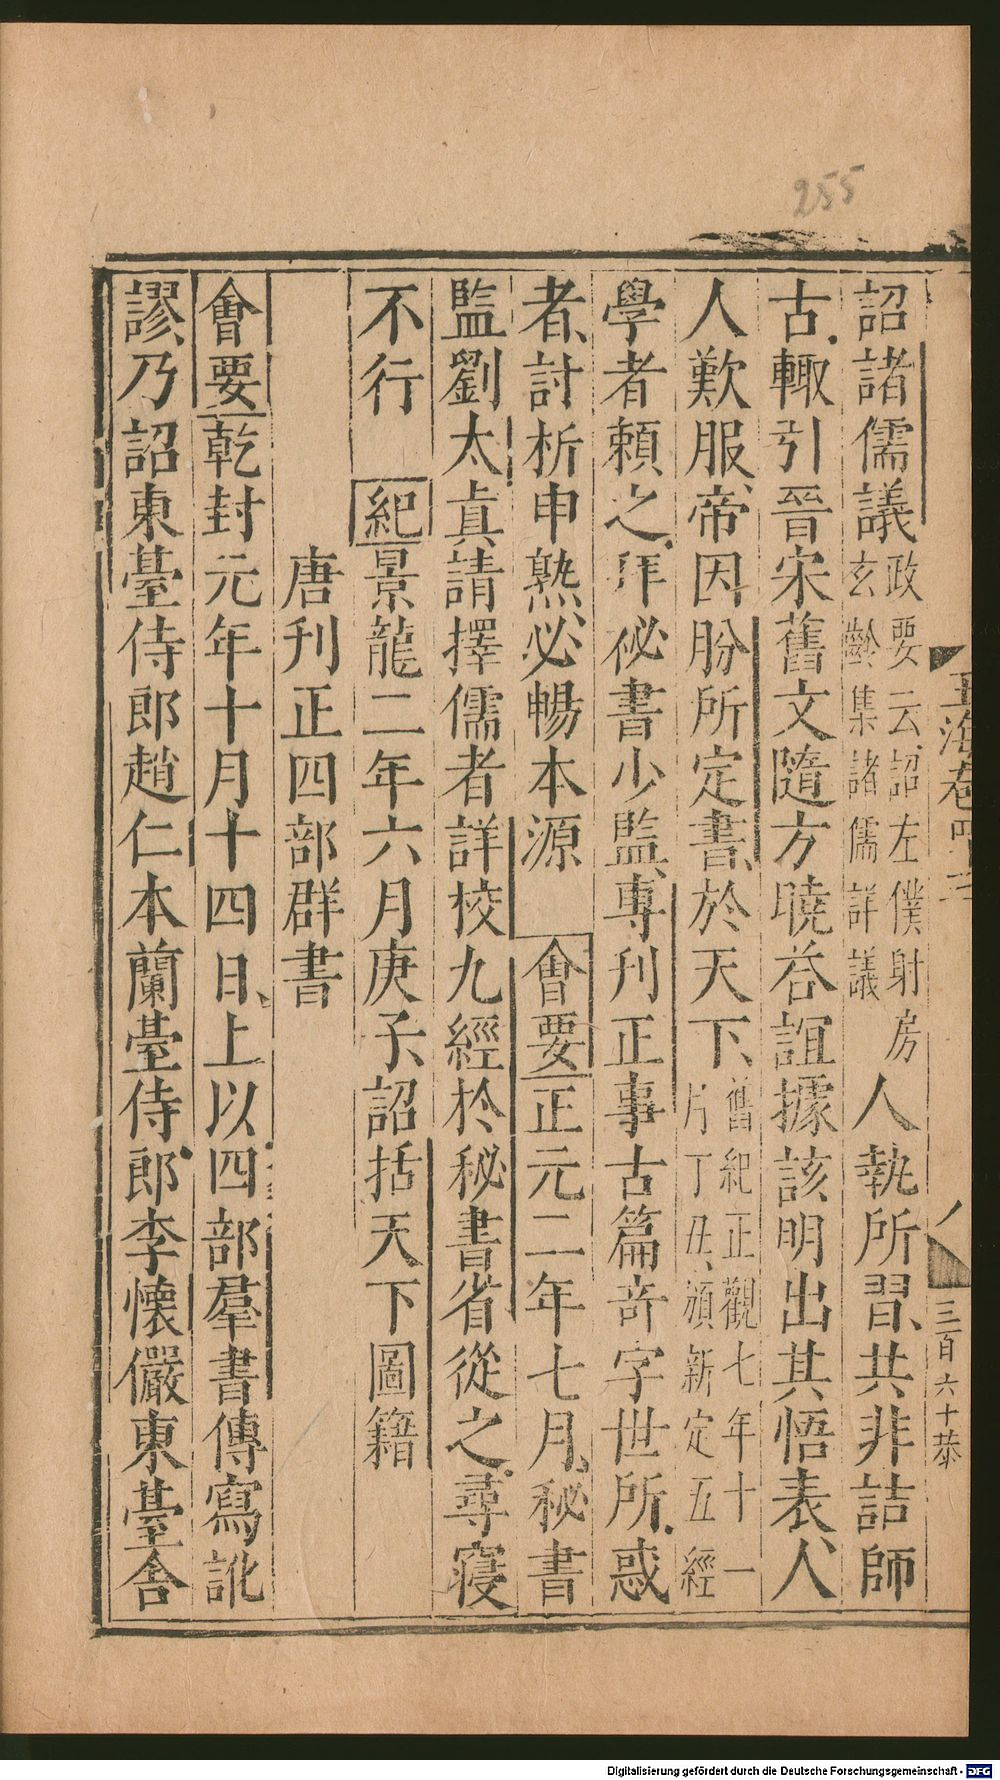 255
詔諸儒議政要云詔左僕射房玄齡集諸儒詳議人執所習共非詰師
古輙引晉宋舊文隨方曉荅誼據該明出其悟表人
人歎服帝因胗所定書於天下舊紀正觀七年十一月丁丑頒新定五經
學者賴之拜祕書少監專刊正事古篇竒字世所惑
者討析申熟必暢本源 會要正元二年七月秘書
監劉太真請擇儒者詳校九經於秘書省從之尋寢
不行 紀景龍二年六月庚子詔括天下圖籍
唐刊正四部群書
會要乾封元年十月十四日上以四部羣書傳寫訛
謬乃詔東臺侍郎趙仁本蘭臺侍郎李懷儼東臺舍
玉海卷四十三
八
三百六十恭
Digitalisierung gefördert durch die Deutsche Forschungsgemeinschaft - DFG